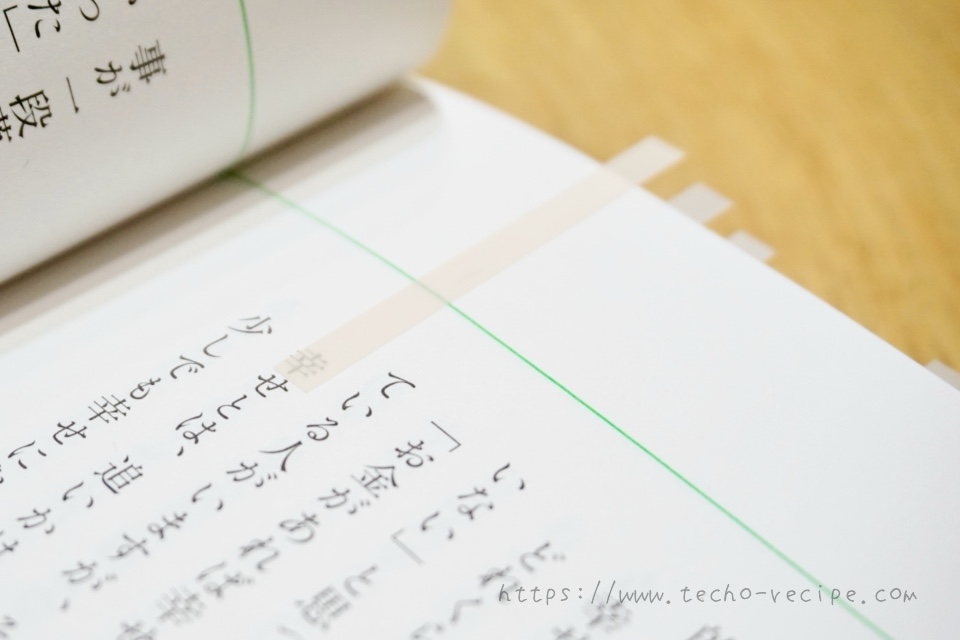 どれく
いない」と思
「お金があれば幸せ
ている人がいますが、
幸せとは、追いかけ
少しでも幸せに
事が一段
った」
https://www.techo-recipe.com